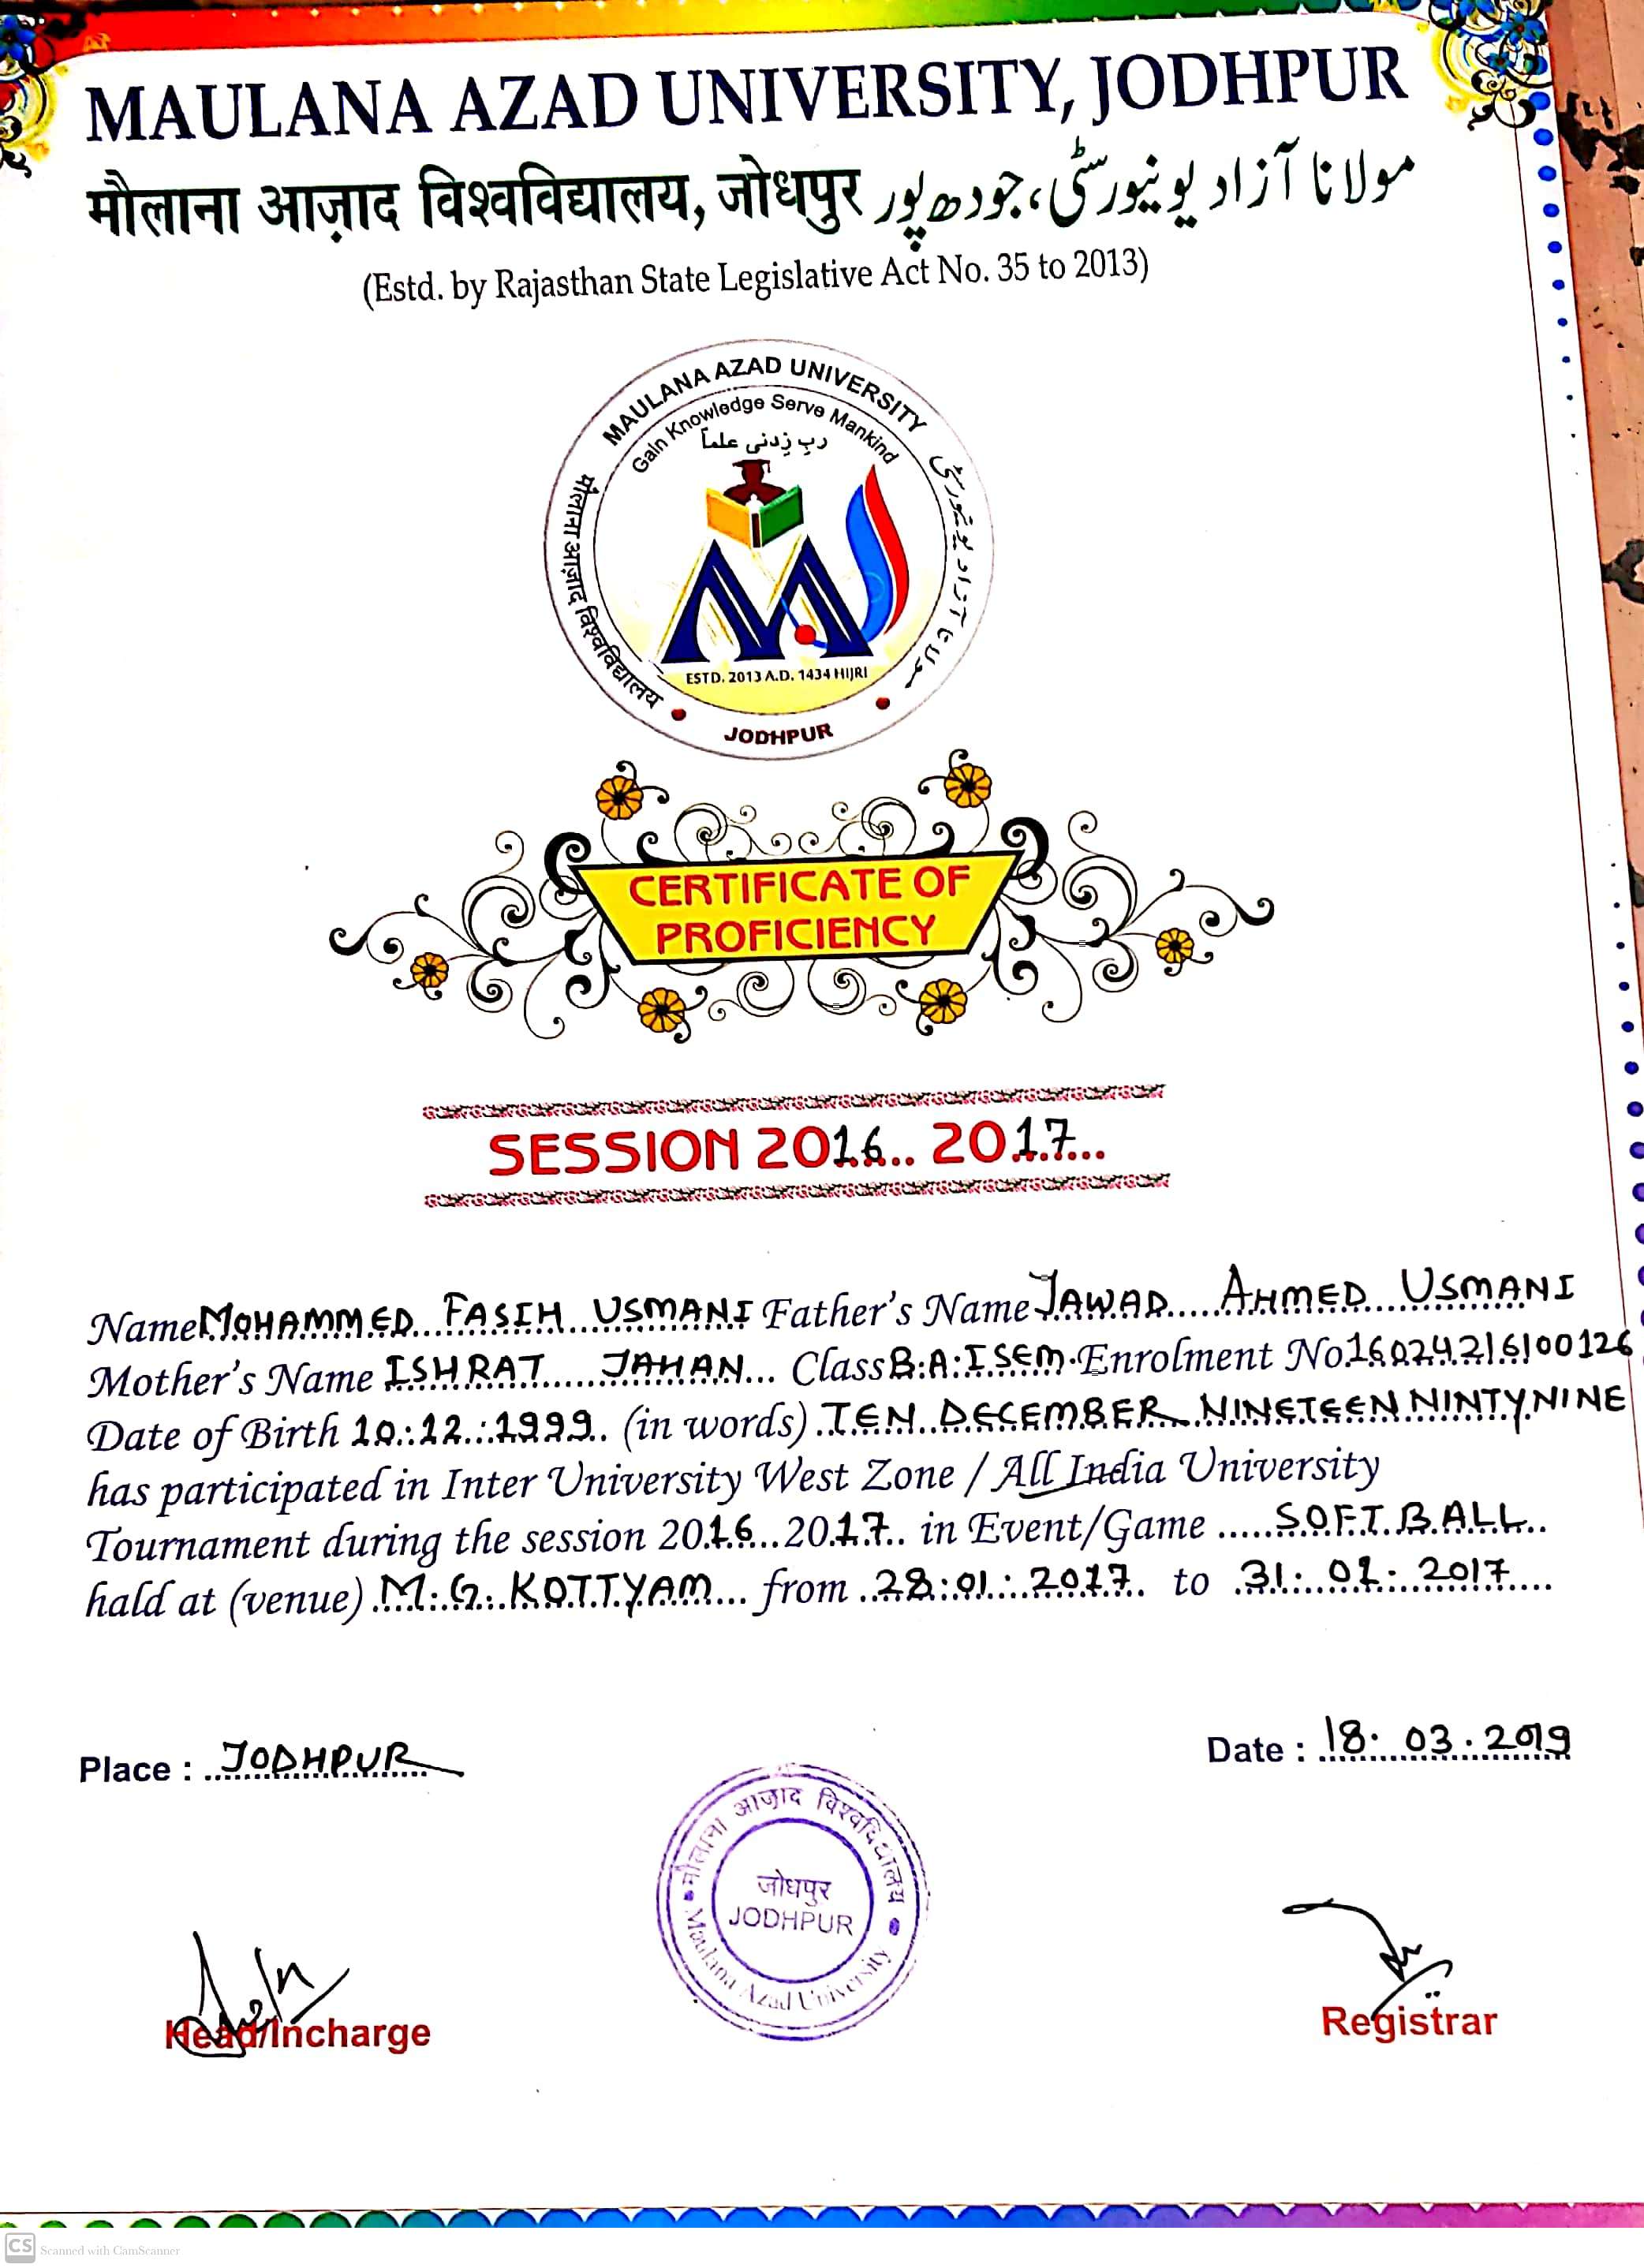 MAULANA AZAD UNIVERSITY, JODHPUR
मौलाना आज़ाद विश्वविद्यालय, जोधपुर مولانا آزاد یونیورسٹی، جودھ پور
(Estd. by Rajasthan State Legislative Act No. 35 to 2013)
MAULANA AZAD UNIVERSITY
Gain Knowledge Serve Mankind
ربِ زِدنی علماً
मौलाना आज़ाद विश्वविद्यालय
مولانا آزاد یونیورسٹی
ESTD. 2013 A.D. 1434 HIJRI
JODHPUR
CERTIFICATE OF
PROFICIENCY
SESSION 2016.. 2017...
Name MOHAMMED FASIH USMANI Father's Name JAWAD AHMED USMANI
Mother's Name ISHRAT JAHAN... Class B.A. I SEM. Enrolment No. 16024216100126
Date of Birth 10.12.1999. (in words) TEN DECEMBER NINETEEN NINTY NINE
has participated in Inter University West Zone / All India University
Tournament during the session 2016...2017.. in Event/Game .....SOFT BALL..
hald at (venue) M.G. KOTTYAM... from ..28.01.2017.. to ..31.01.2017....
Place : JODHPUR
Date : 18.03.2019
मौलाना आज़ाद विश्वविद्यालय
जोधपुर
JODHPUR
Maulana Azad University
Head/Incharge
Registrar
CS Scanned with CamScanner